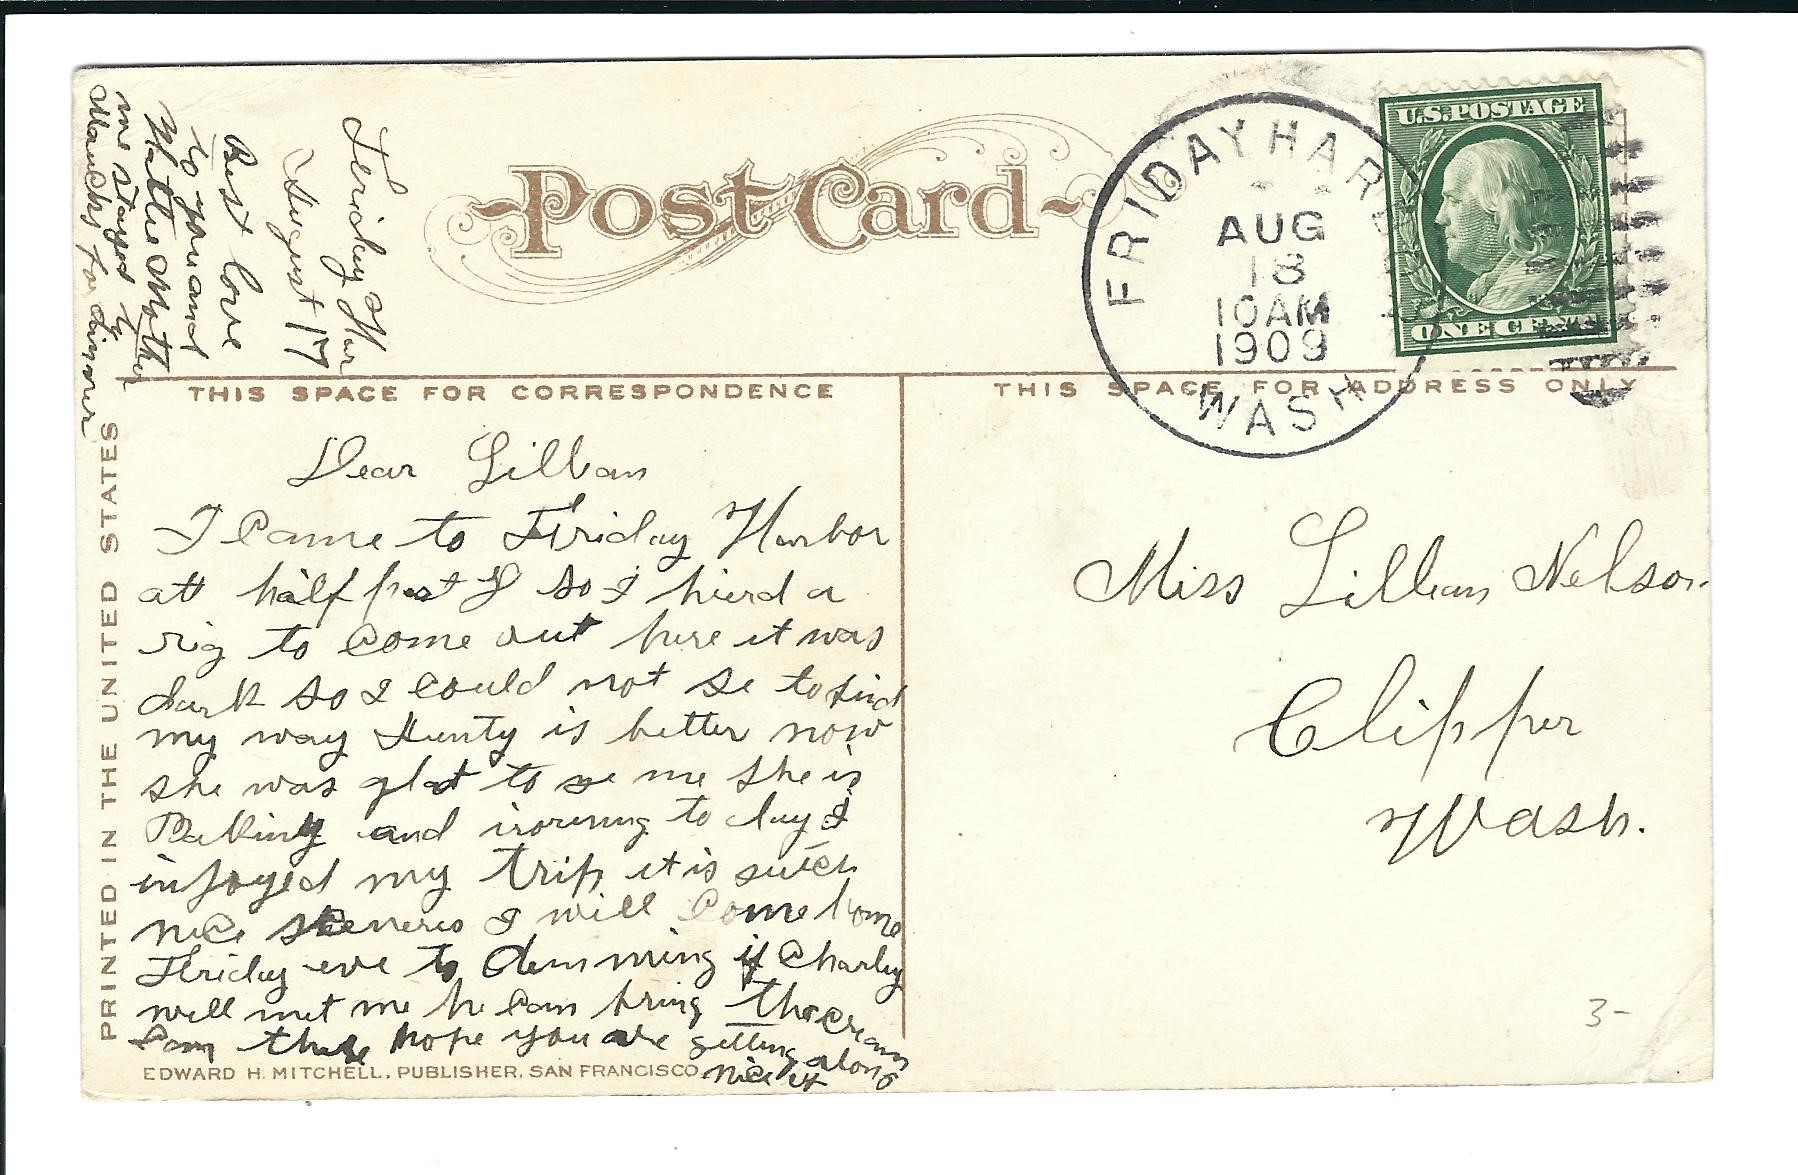 Post Card
U.S. POSTAGE
ONE CENT
FRIDAY HAR
AUG
18
10AM
1909
WASH
THIS SPACE FOR CORRESPONDENCE
THIS SPACE FOR ADDRESS ONLY
Friday Har
August 17
Best love
to you and
Mattie Mother
we stayed by
for dinner
Dear Lillian
I came to Friday Harbor
att half past so I hierd a
rig to come out here it was
dark so I could not se to find
my way Aunty is better now
she was glad to se me she is
Baking and irorning to day I
injoyed my trip it is sutch
nice skeneres I will come home
Friday eve to Demming if Charley
will met me he can bring the cream
can there hope you are getting along
nice
Miss Lillian Nelson
Clipper
Wash.
3-
PRINTED IN THE UNITED STATES
EDWARD H. MITCHELL, PUBLISHER, SAN FRANCISCO